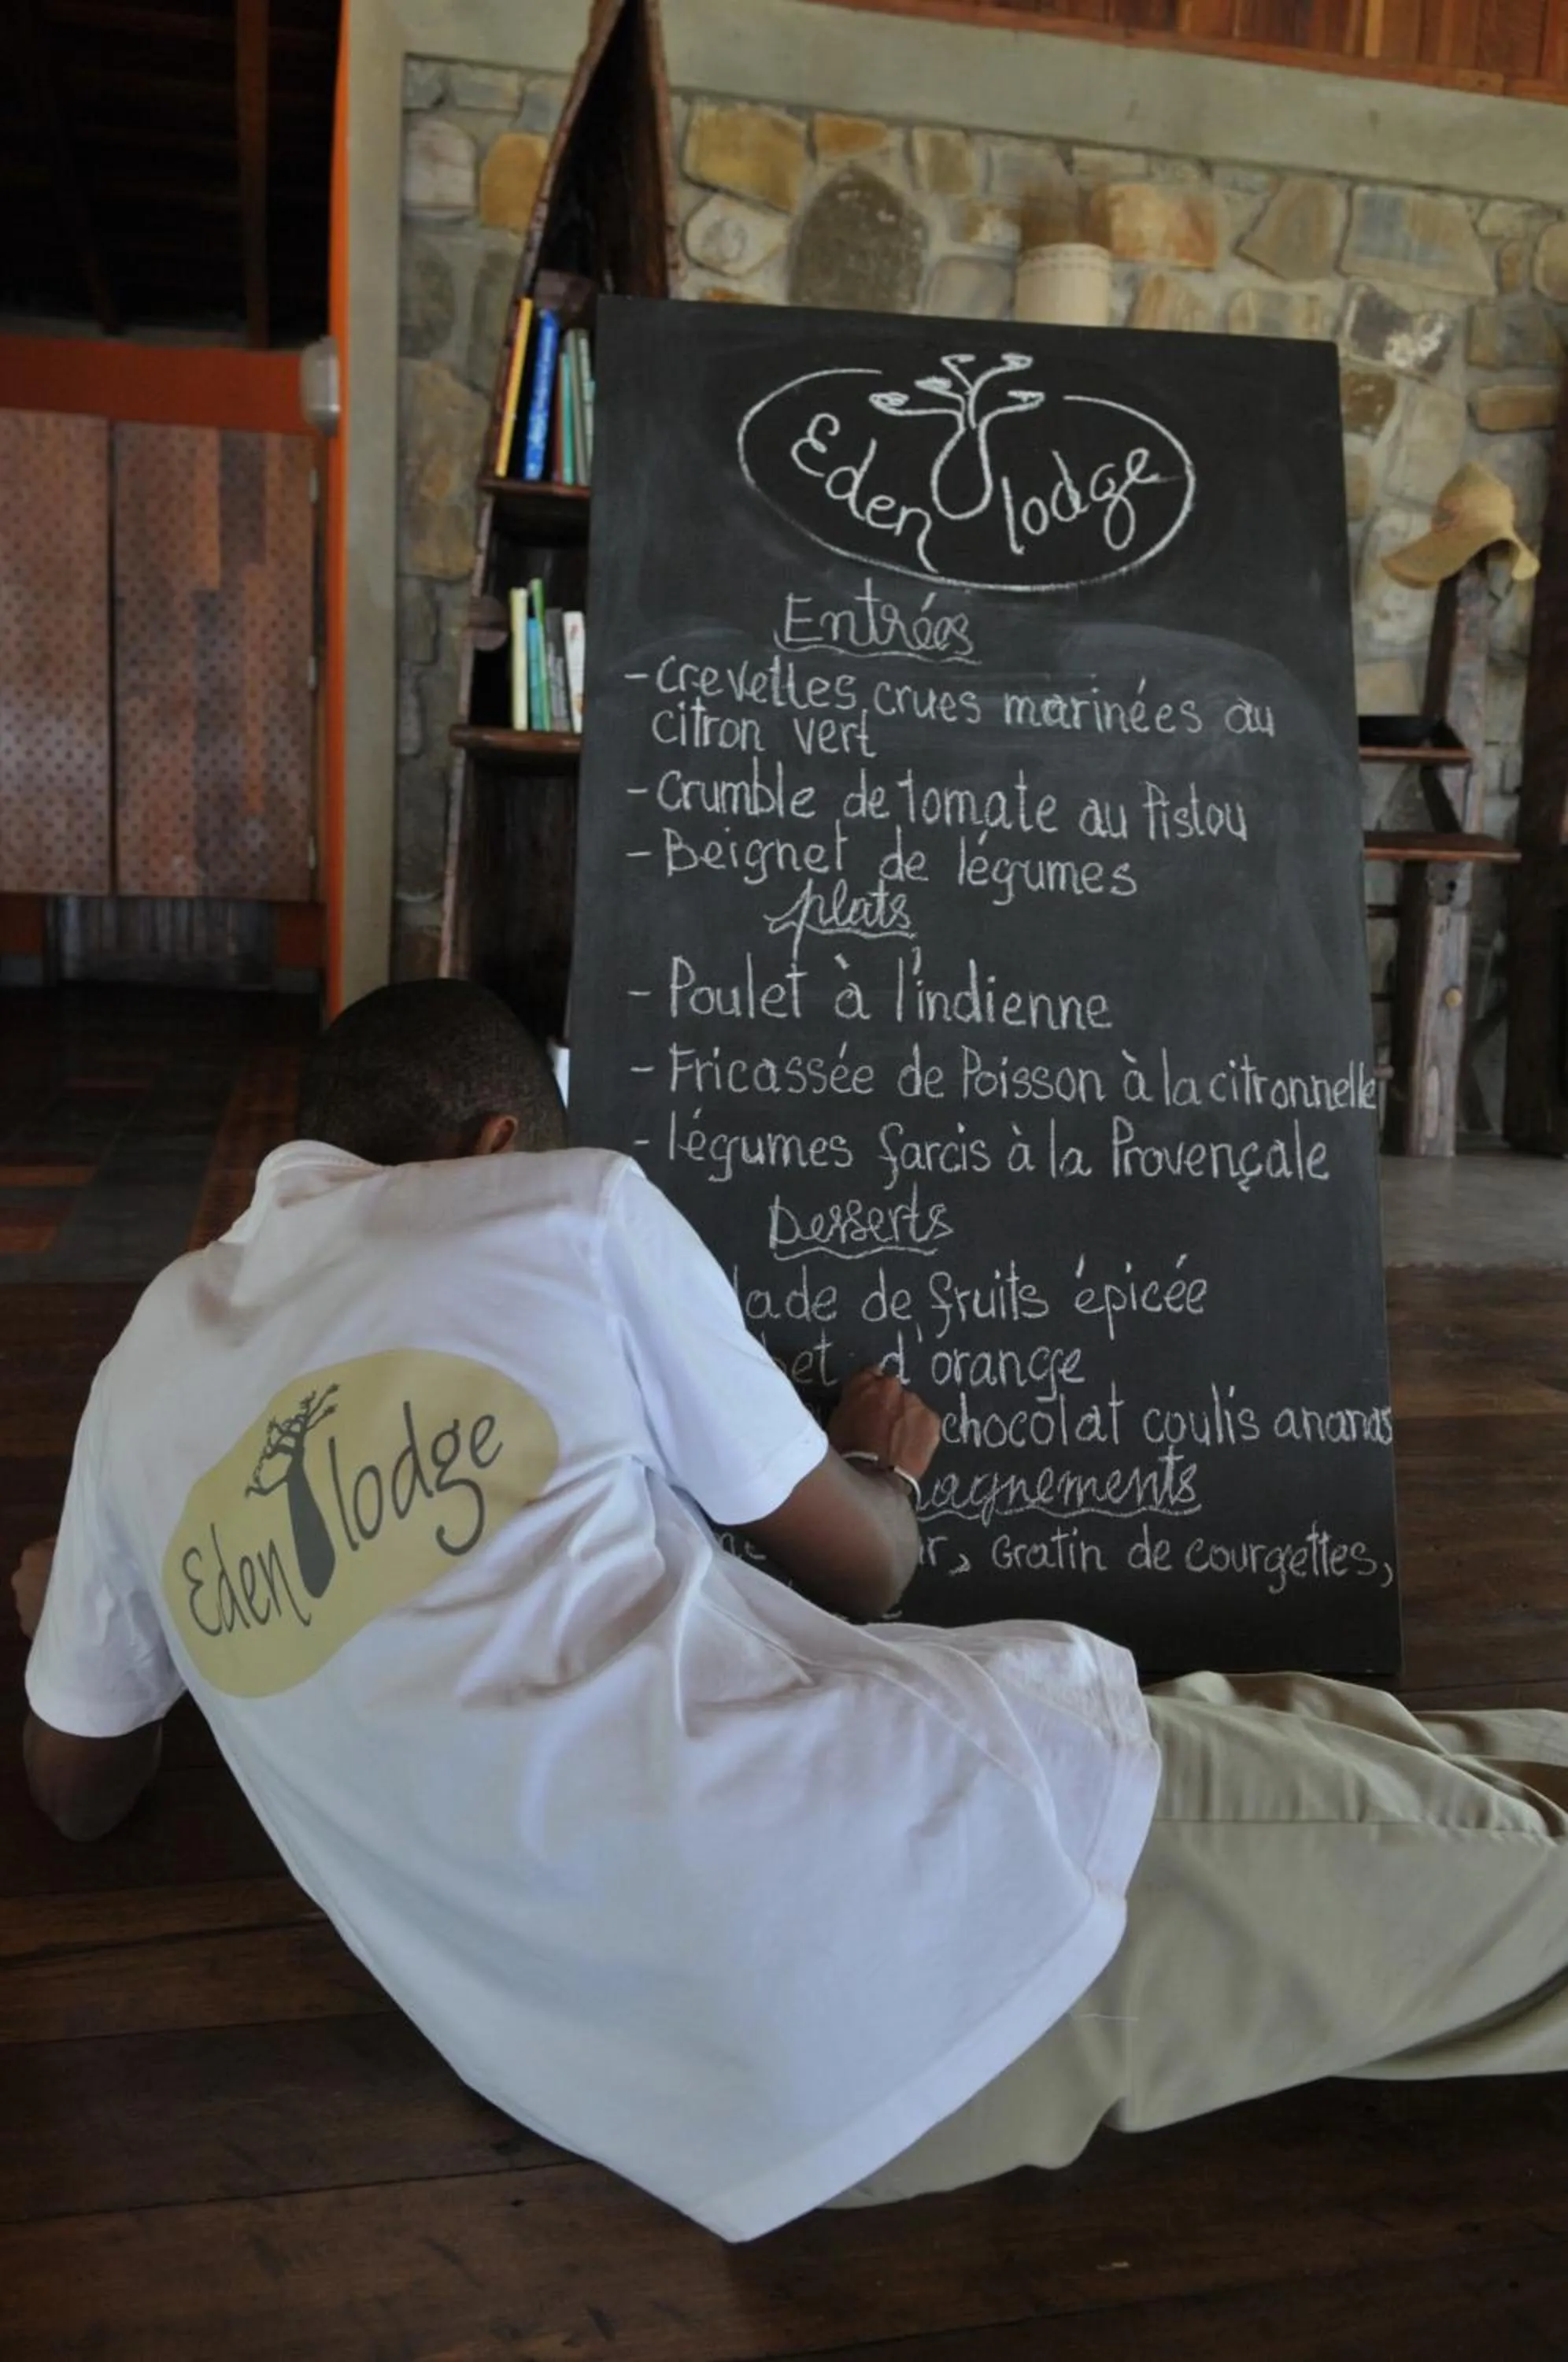 Eden lodge
Entrées
- Crevettes crues marinées au
citron vert
- Crumble de tomate au Pistou
- Beignet de légumes
plats
- Poulet à l'indienne
- Fricassée de Poisson à la citronnelle
- légumes farcis à la Provençale
Desserts
de fruits épicée
d'orange
chocolat coulis ananas
Gratin de courgettes,
Eden lodge